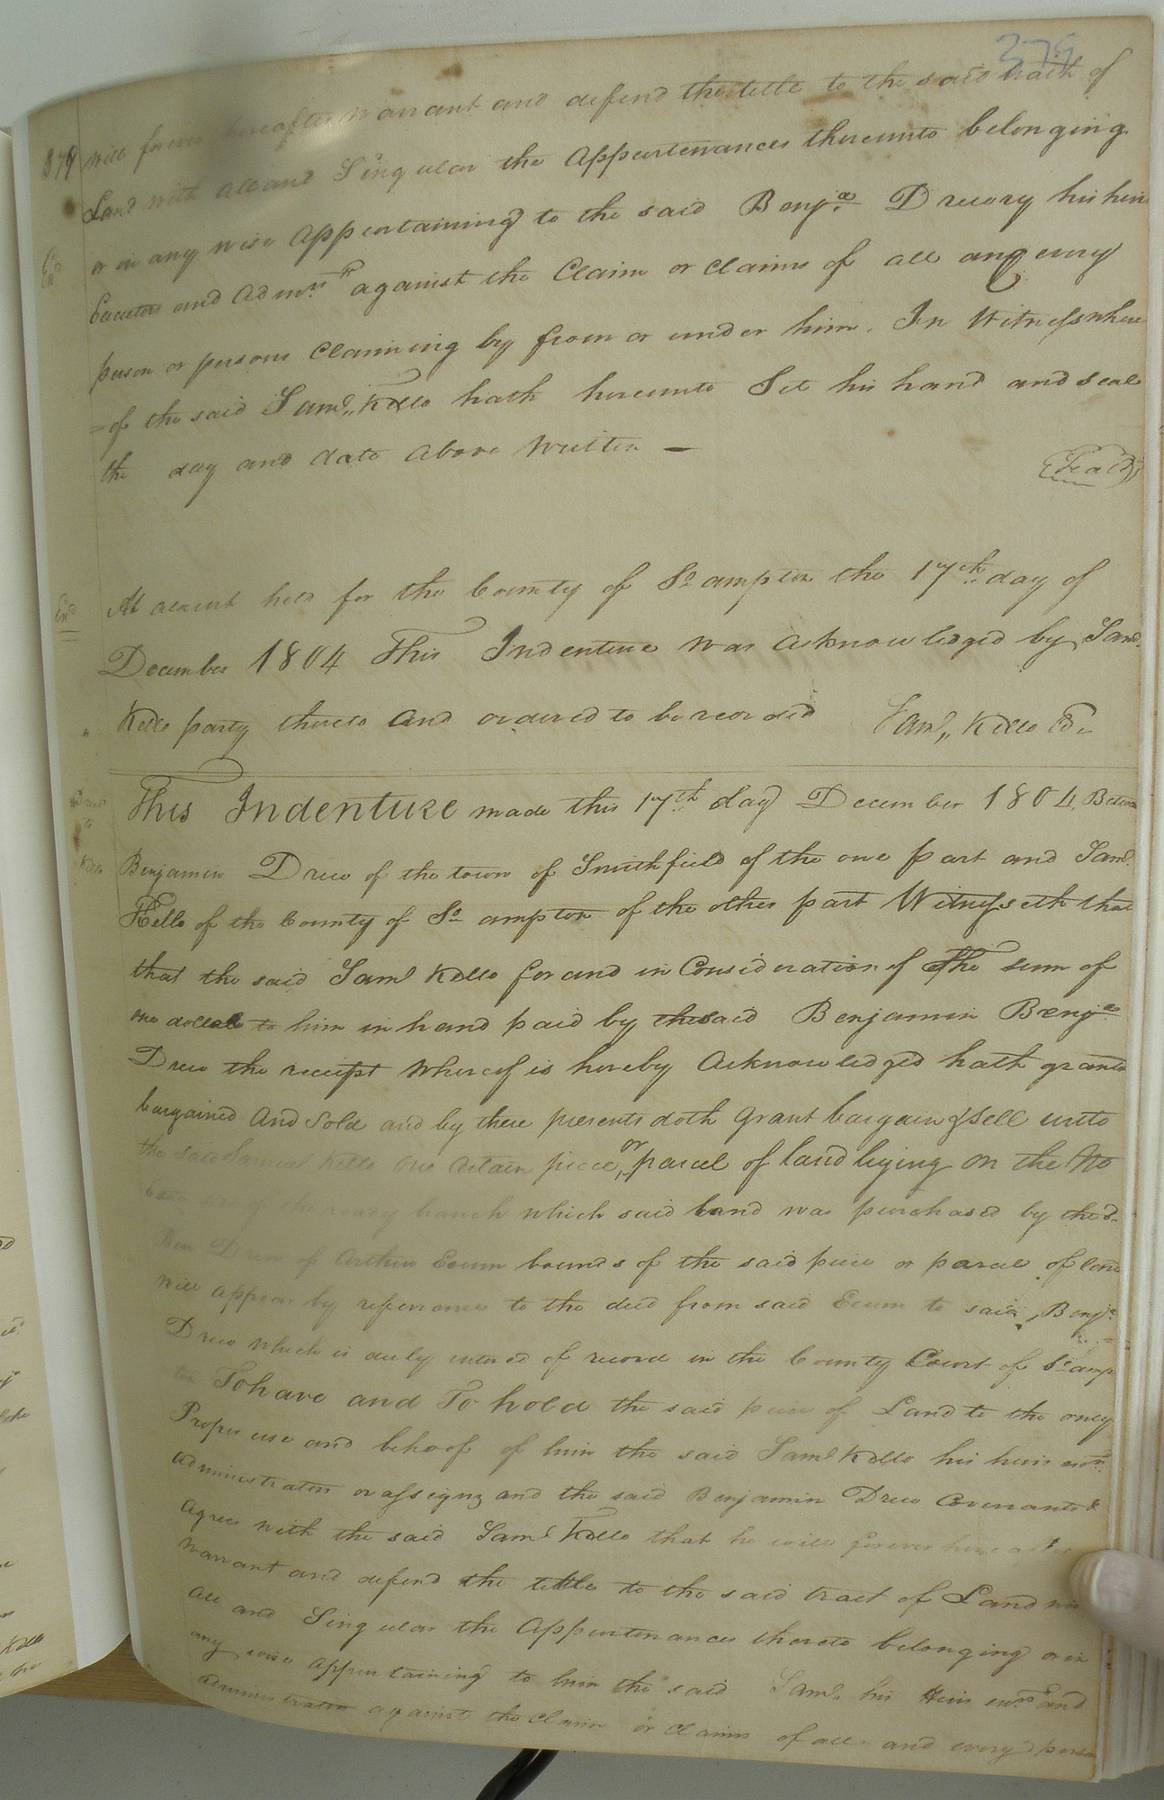 379
379 will forever hereafter warrant and defend the title to the said tract of
Land with all and Singular the Appurtenances thereunto belonging
or in any wise Appertaining to the said Benjᵃ Drewry his heirs
Executors and Admrs against the Claim or claims of all and every
person or persons Claiming by from or under him. In Witness where
=of the said Saml,, Kello hath hereunto Set his hand and seal
the day and date above Written —
Seal
At a Court held for the County of So ampton the 17th day of
December 1804 This Indenture was Acknowledged by Saml.
Kello party thereto and ordered to be recorded Saml,, Kello
This Indenture made this 17th day December 1804. Between
Benjamin Drew of the town of Smithfield of the one part and Saml.
Kello of the County of So ampton of the other part Witnesseth that
that the said Saml Kello for and in Consideration of The sum of
one dollar to him in hand paid by the said Benjamin Benja
Drew the receipt Whereof is hereby Acknowledged hath granted
bargained And Sold and by these presents doth Grant bargain & Sell unto
the said Samuel Kello One certain piece, or parcel of land lying on the No
side of the branch which said land was purchased by the sd.
Ben Drew of Arthur Exum bounds of the said piece or parcel of land
will appear by referrance to the deed from said Exum to said, Benja
Drew which is duly entered of record in the County Court of So amp
ton To have and To hold the said piece of Land to the only
Proper use and behoof of him the said Saml Kello his heirs exors
administrators or assigns and the said Benjamin Drew Covenants &
agrees with the said Saml Kello that he will forever hereafter
warrant and defend the tittle to the said tract of Land with
all and Singular the Appurtenances thereto belonging or in
any wise appertaining to him the said Saml. his Heirs exrs and
administrators against the claim or claims of all and every person